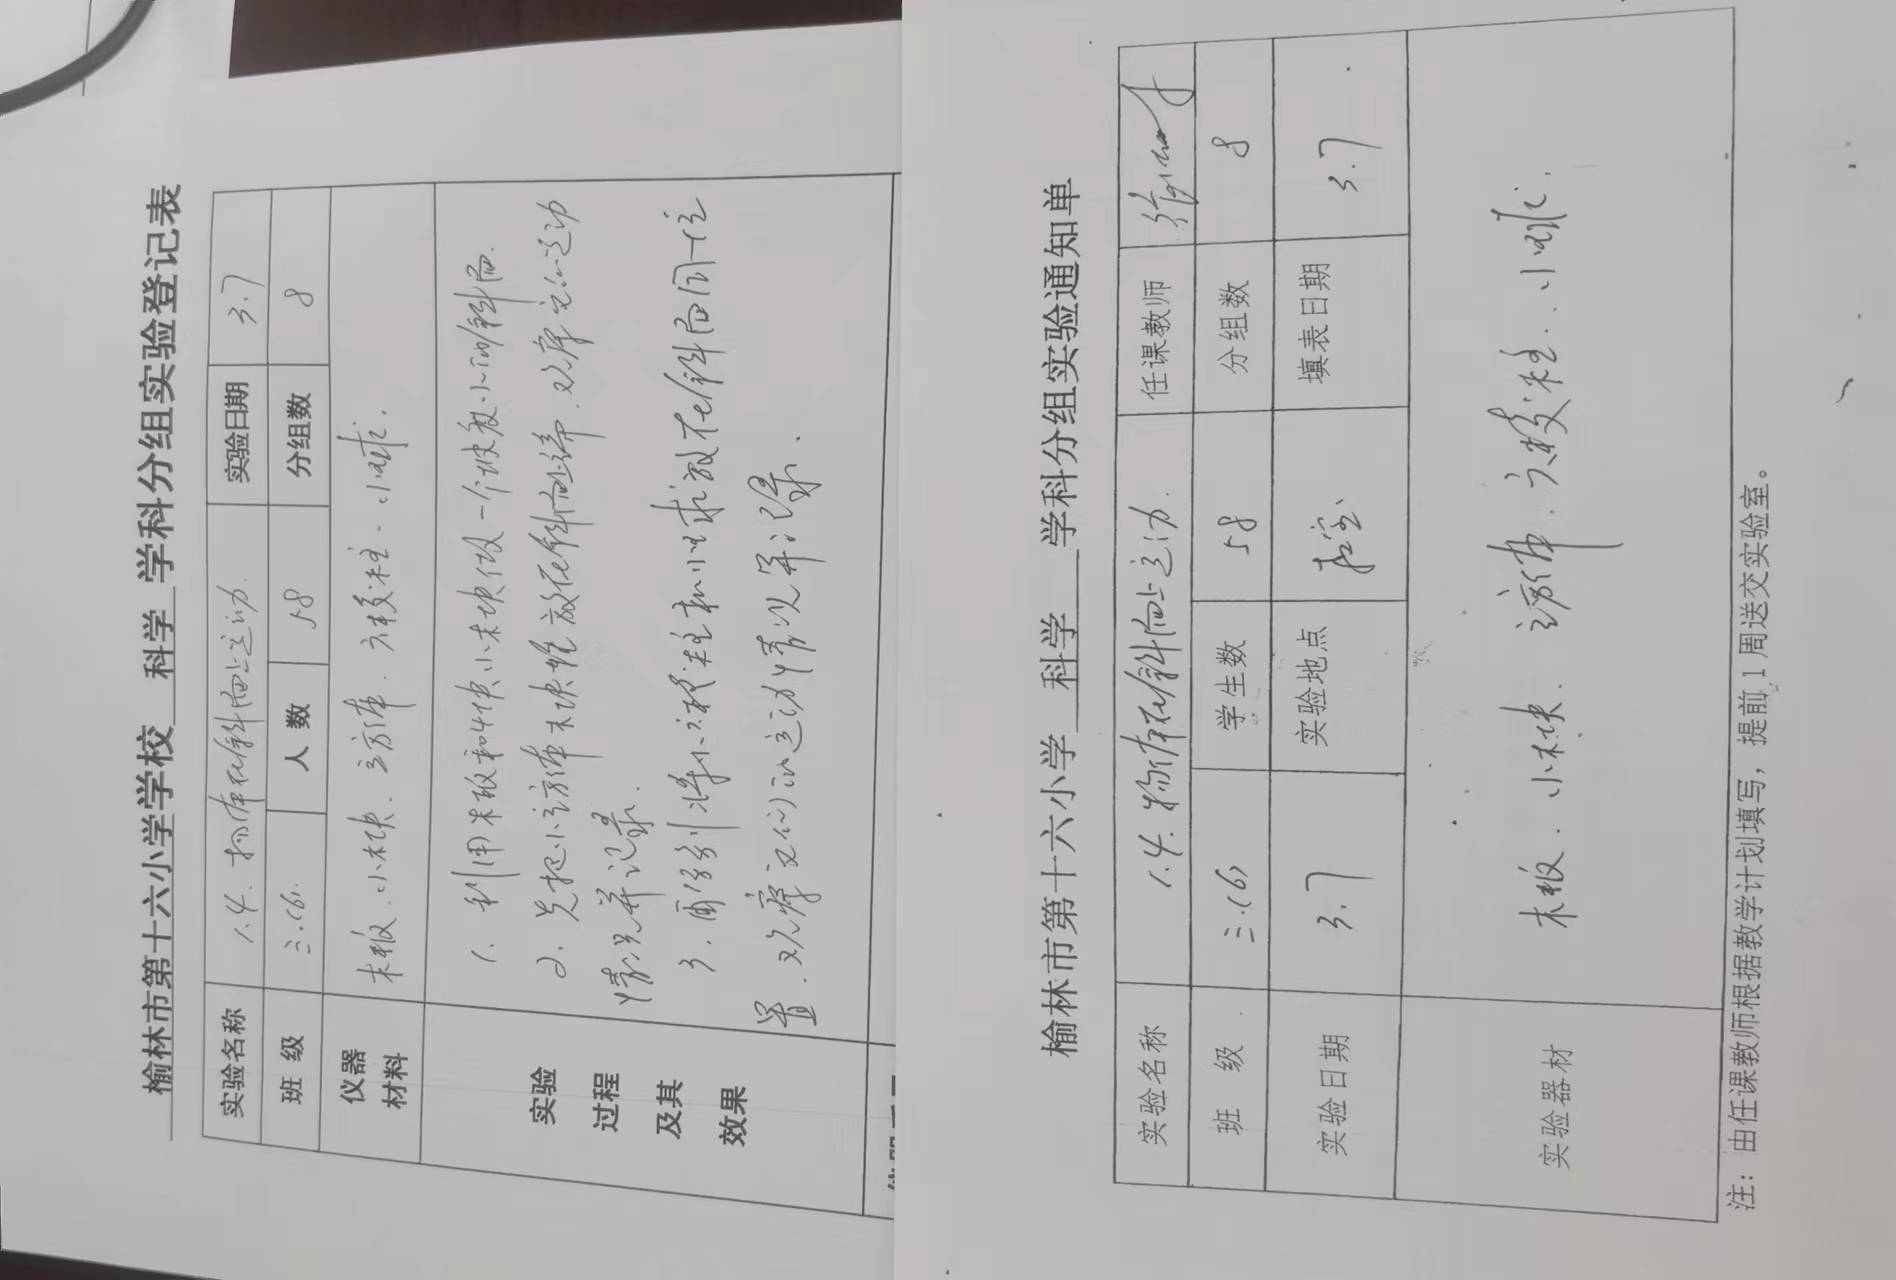 榆林市第十六小学学校 科学 学科分组实验登记表
实验名称 1.4.物体在斜面上运动. 实验日期 3.7
班 级 三.(6). 人 数 58 分组数 8
仪器材料 木板、小木块、立方体、六棱柱、小球.
实验过程及其效果
1. 利用木板和4块小木块做一个坡度小的斜面.
2. 先把小立方体木块 放在斜面上端.观察它的运动
情况并记录.
3. 再分别将小六棱柱和小球放在斜面同一位
置.观察它们的运动情况并记录.
榆林市第十六小学 科学 学科分组实验通知单
实验名称 1.4.物体在斜面上运动. 任课教师
班 级 三.(6) 学生数 58 分组数 8
实验日期 3.7 实验地点 填表日期 3.7
实验器材 木板、小木块、立方体、六棱柱、小球.
注:由任课教师根据教学计划填写,提前1周送交实验室。